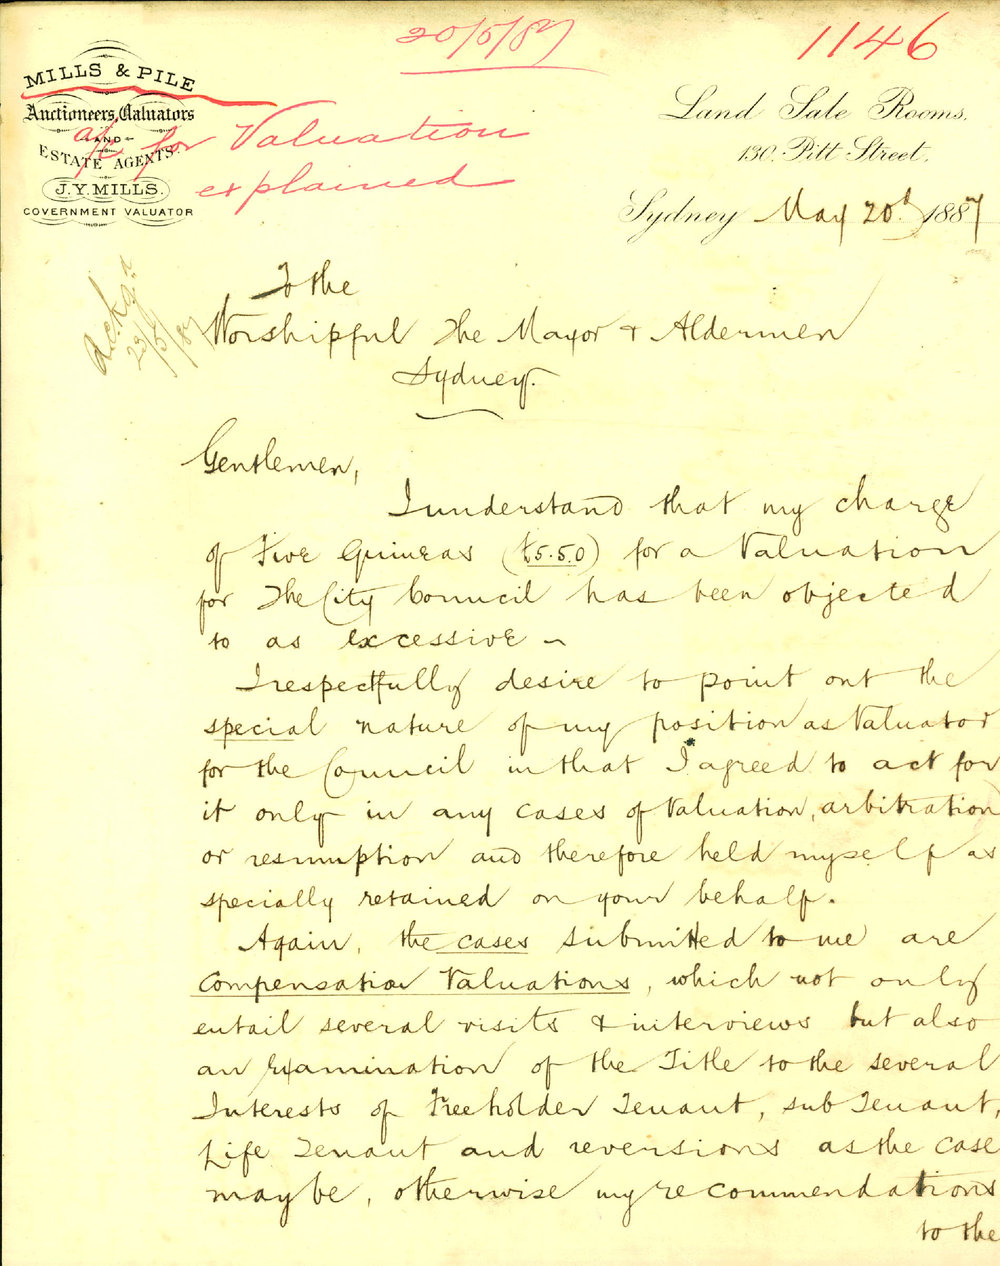 20/5/87
1146
MILLS & PILE
Auctioneers, Valuators
AND
ESTATE AGENTS.
J.Y. MILLS.
GOVERNMENT VALUATOR
a/c for Valuation
explained
Land Sale Rooms.
130, Pitt Street.
Sydney May 20th 1887
Ackgd
23/5/87
To the
Worshipful The Mayor & Aldermen
Sydney.
Gentlemen,
I understand that my charge
of Five Guineas (£5.5.0) for a Valuation
for The City Council has been objected
to as excessive ~
I respectfully desire to point out the
special nature of my position as Valuator
for the Council in that I agreed to act for
it only in any cases of Valuation, arbitration
or resumption and therefore held myself as
specially retained on your behalf.
Again, the cases submitted to me are
Compensation Valuations, which not only
entail several visits & interviews but also
an Examination of the Title to the several
Interests of Freeholder Tenant, sub Tenant,
Life Tenant and reversions as the case
may be, otherwise my recommendations
to the